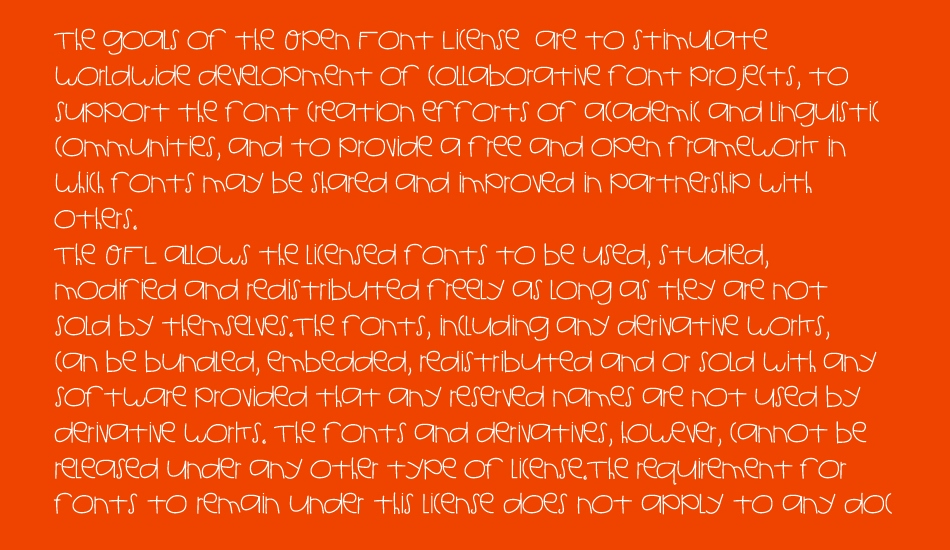 The goals of the Open Font License  are to stimulate
worldwide development of collaborative font projects, to
support the font creation efforts of academic and linguistic
communities, and to provide a free and open framework in
which fonts may be shared and improved in partnership with
others.
The OFL allows the licensed fonts to be used, studied,
modified and redistributed freely as long as they are not
sold by themselves.The fonts, including any derivative works,
can be bundled, embedded, redistributed and or sold with any
software provided that any reserved names are not used by
derivative works. The fonts and derivatives, however, cannot be
released under any other type of license.The requirement for
fonts to remain under this license does not apply to any doc